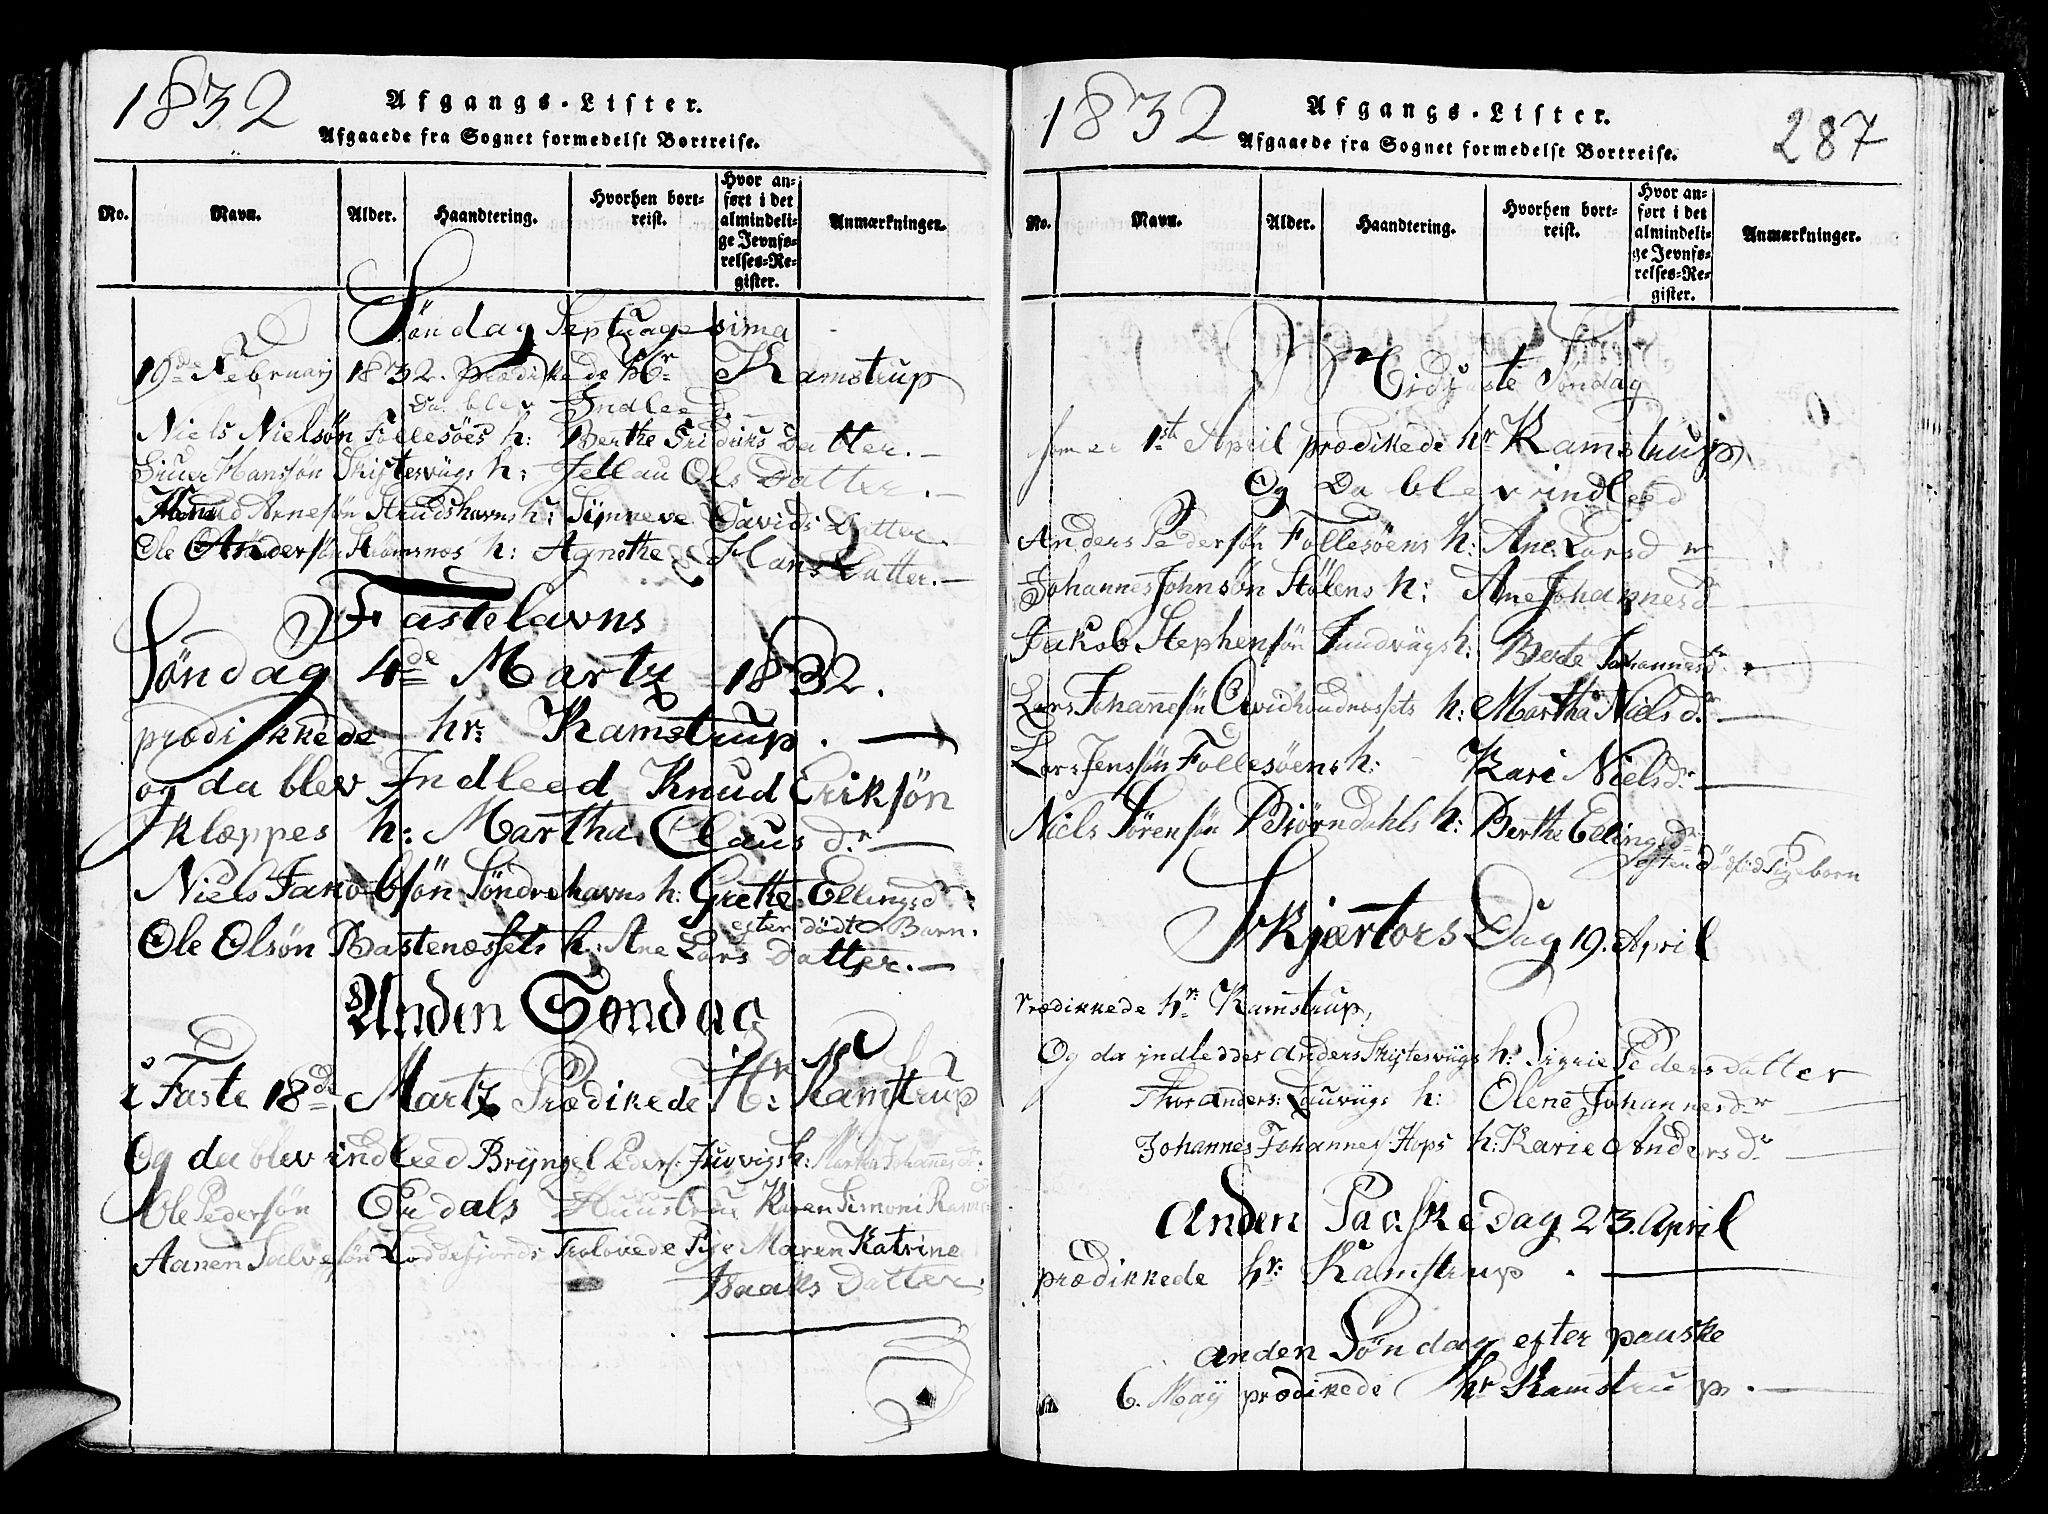 1832
Afgangs-Lister.
Afgaaede fra Sognet formedelst Bortreise.
No. Navn. Alder. Haandtering. Hvorhen bortreist. Hvor anført i det almindelige Jevnførelses-Register. Anmærkninger.
Søndag Septuagesima
19de Februarij 1832. prædikede Hr Kamstrup
Da blev Indleed.
Niels Nielsøn Follesøes h: Berthe Fridriks Datter.
Hanssøn Skiftesvügs h: Ols Datter.
Knud Arnesøn h: Sÿnneve Davids Datter.
Ole Andersøn h: Agnethe Hans Datter.
Fastelavns
Søndag 4de Martz 1832.
prædikkede hr: Kamstrup.
og da blev Indleed Knud Eriksøn
Klæppes h: Martha Clausdr
Niels Jakobsøn Søndrehavns h: Grethe Ellingsdr
efter dödt Barn.
Ole Olsøn Bastenæssets h: Ane Lars Datter.
Anden Søndag
i Faste 18de Martz Prædikede Hr: Kamstrup
Og da blev indleed Brÿngel Peders: h: Martha Johannesdr:
Ole Pedersøn Eidals Huustrue Karen Simoni
Aanen Salvesøn Loddefjords Trolovede Pige Maren Katrine
Isaaks Datter.
1832
Afgangs-Lister.
Afgaaede fra Sognet formedelst Bortreise.
287
No. Navn. Alder. Haandtering. Hvorhen bortreist. Hvor anført i det almindelige Jevnførelses-Register. Anmærkninger.
Søndag
som er 1ste April prædikede hr Kamstrup
Og Da blev indleed
Anders Pedersøn Follesøens h: Ane Larsdr
Johannes Johnsøn Stølens h: Ane Johannesdr
Jakob Stephensøn h: Berte Johannesdr.
Lars Johannesøn h: Martha Nielsdr
Lars Jenssøn Follesøens h: Kari Nielsdr
Niels Sørensøn Biørndahls h: Berthe Ellingsdr
efter dödfød Pigebarn
Skjærtors Dag 19. April
Prædikkede hr: Kamstrup,
Og da indleddes Anders Skiftesvügs h: Sigrie Pedersdatter
Thor Anders: h: Olene Johannesdr
Johannes Johannes: Hops h: Karie Andersdr
Anden Paaske Dag 23. April
prædikkede hr: Kamstrup.
anden Søndag efter paaske
6. Maÿ prædikede hr Kamstrup.